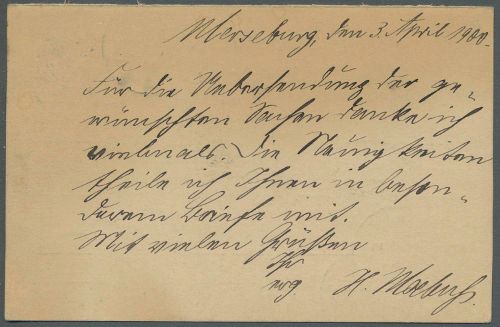 Merseburg, den 3. April 1900.
Für die Uebersendung der ge-
wünschten Sachen danke ich
vielmals. Die Neuigkeiten
theile ich Ihnen in beson-
derem Briefe mit.
Mit vielen Grüßen
Ihr
erg
H.